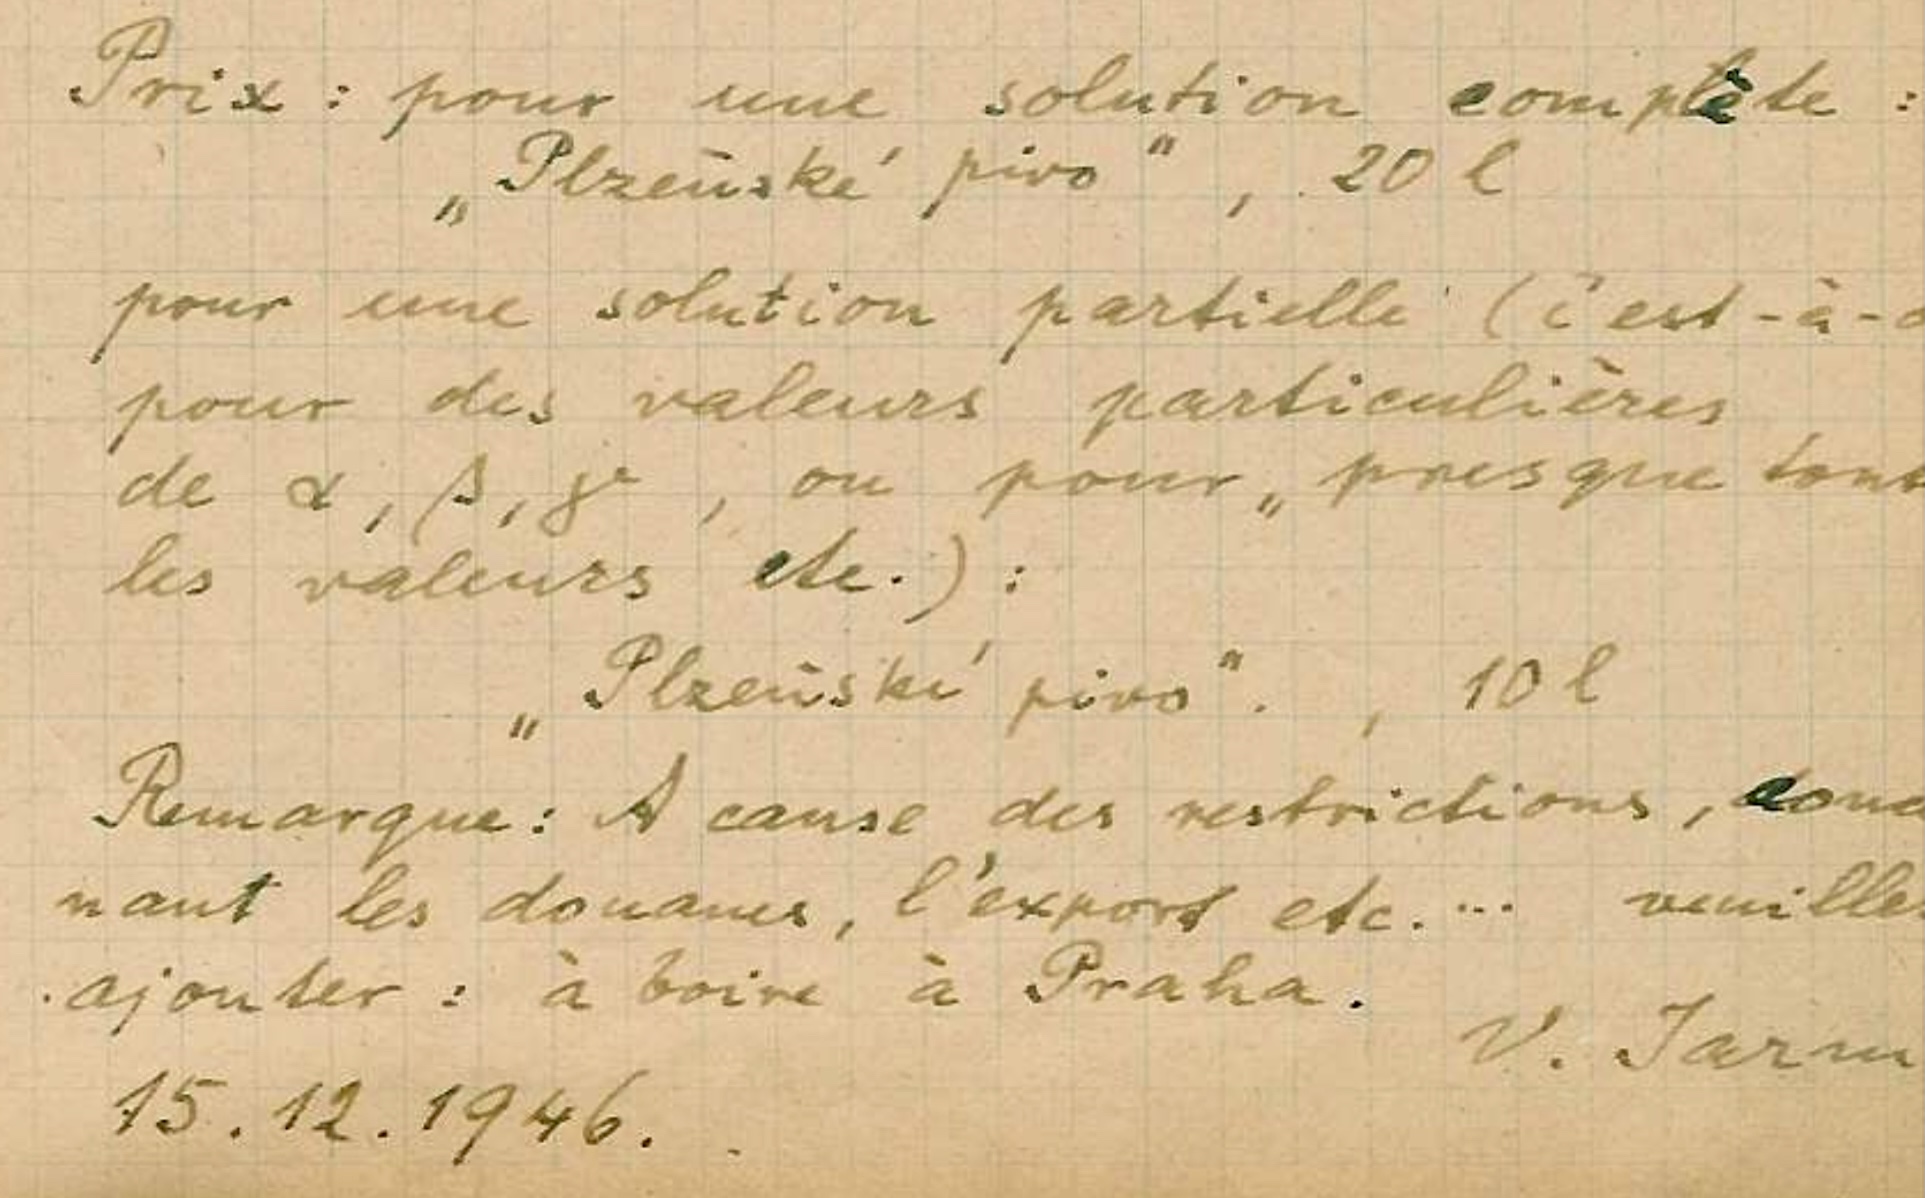 Prix : pour une solution complète :
„Plzeňské pivo", 20 l
pour une solution partielle (c'est-à-d
pour des valeurs particulières
de α, β, γ, ou pour „presque tout
les valeurs etc.) :
„Plzeňské pivo". , 10 l
Remarque : A cause des restrictions, conc
nant les douanes, l'export etc. ... veuille
ajouter : à boire à Praha.
V. Jarn
15.12.1946.